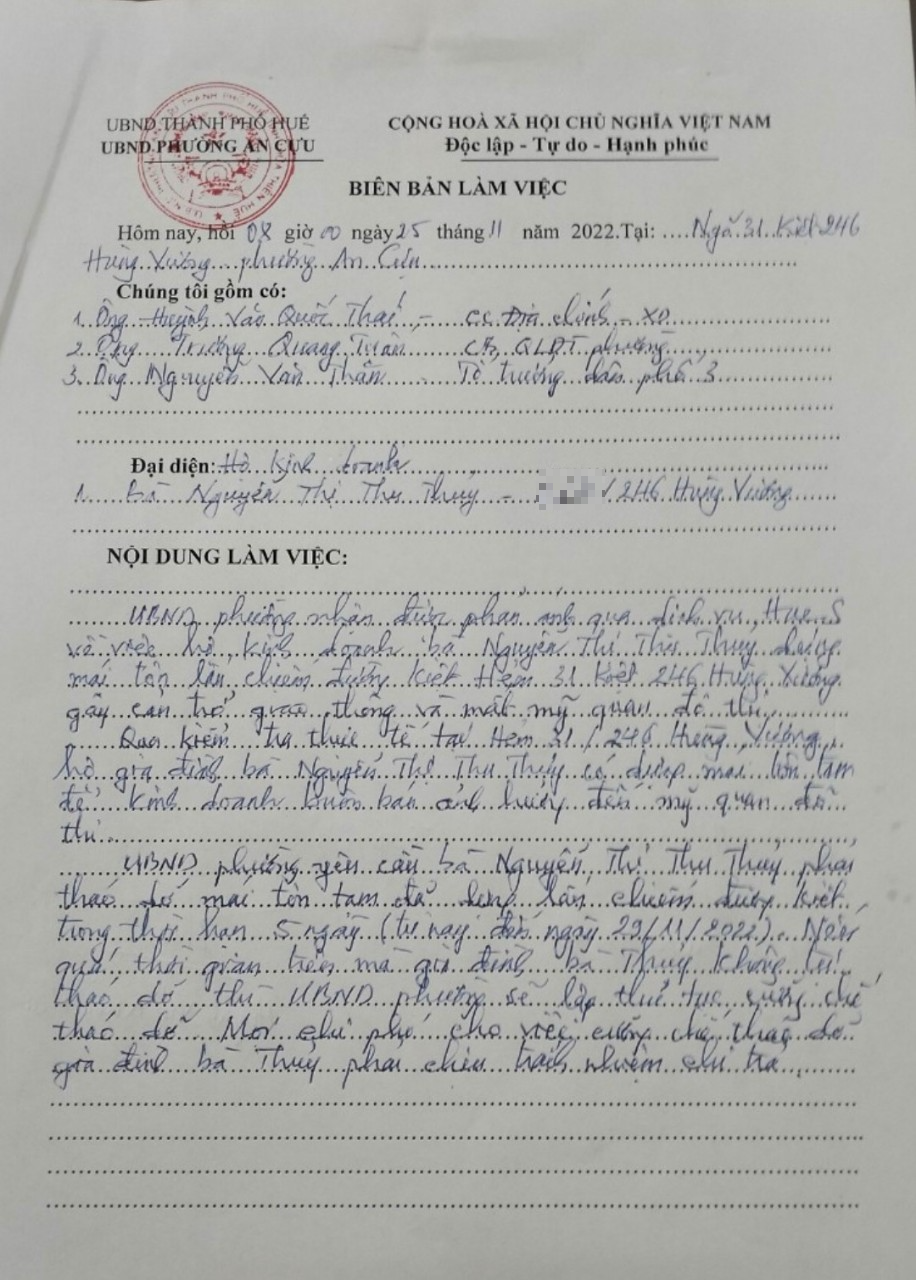 UBND.THÀNH PHỐ HUẾ
UBND.PHƯỜNG AN CỰU
CỘNG HOÀ XÃ HỘI CHỦ NGHĨA VIỆT NAM
Độc lập - Tự do - Hạnh phúc
BIÊN BẢN LÀM VIỆC
Hôm nay, hồi 08 giờ 00 ngày 25 tháng 11 năm 2022.Tại: Ngã 31 Kiệt 246
Hùng Vương phường An Cựu
Chúng tôi gồm có:
1. Ông Huỳnh Quốc Thái - CC Địa chính - XD
2. Ông Trương Quang Tuấn CB QLĐT phường
3. Ông Nguyễn Văn Thân - Tổ trưởng dân phố 3
Đại diện: Hộ kinh doanh
1. Bà Nguyễn Thị Thu Thuỷ - / 246 Hùng Vương
NỘI DUNG LÀM VIỆC:
UBND phường nhận được phản ánh qua dịch vụ Hue S
về việc hộ kinh doanh bà Nguyễn Thị Thu Thuỷ dựng
mái tôn lấn chiếm đường Kiệt Hẻm 31 Kiệt 246 Hùng Vương
gây cản trở giao thông và mất mỹ quan đô thị
Qua kiểm tra thực tế tại Hẻm 31 / 246 Hùng Vương,
hộ gia đình bà Nguyễn Thị Thu Thủy có dựng mái tôn tạm
để kinh doanh buôn bán ảnh hưởng đến mỹ quan đô
thị
UBND phường yêu cầu bà Nguyễn Thị Thu Thuỷ phải
tháo dỡ mái tôn tạm đã dựng lấn chiếm đường kiệt
trong thời hạn 5 ngày (từ nay đến ngày 29/11/2022). Nếu
quá thời gian trên mà gia đình bà Thuỷ không tự
tháo dỡ thì UBND phường sẽ lập thủ tục cưỡng chế
tháo dỡ Mọi chi phí cho việc cưỡng chế tháo dỡ
gia đình bà Thuỷ phải chịu trách nhiệm chi trả